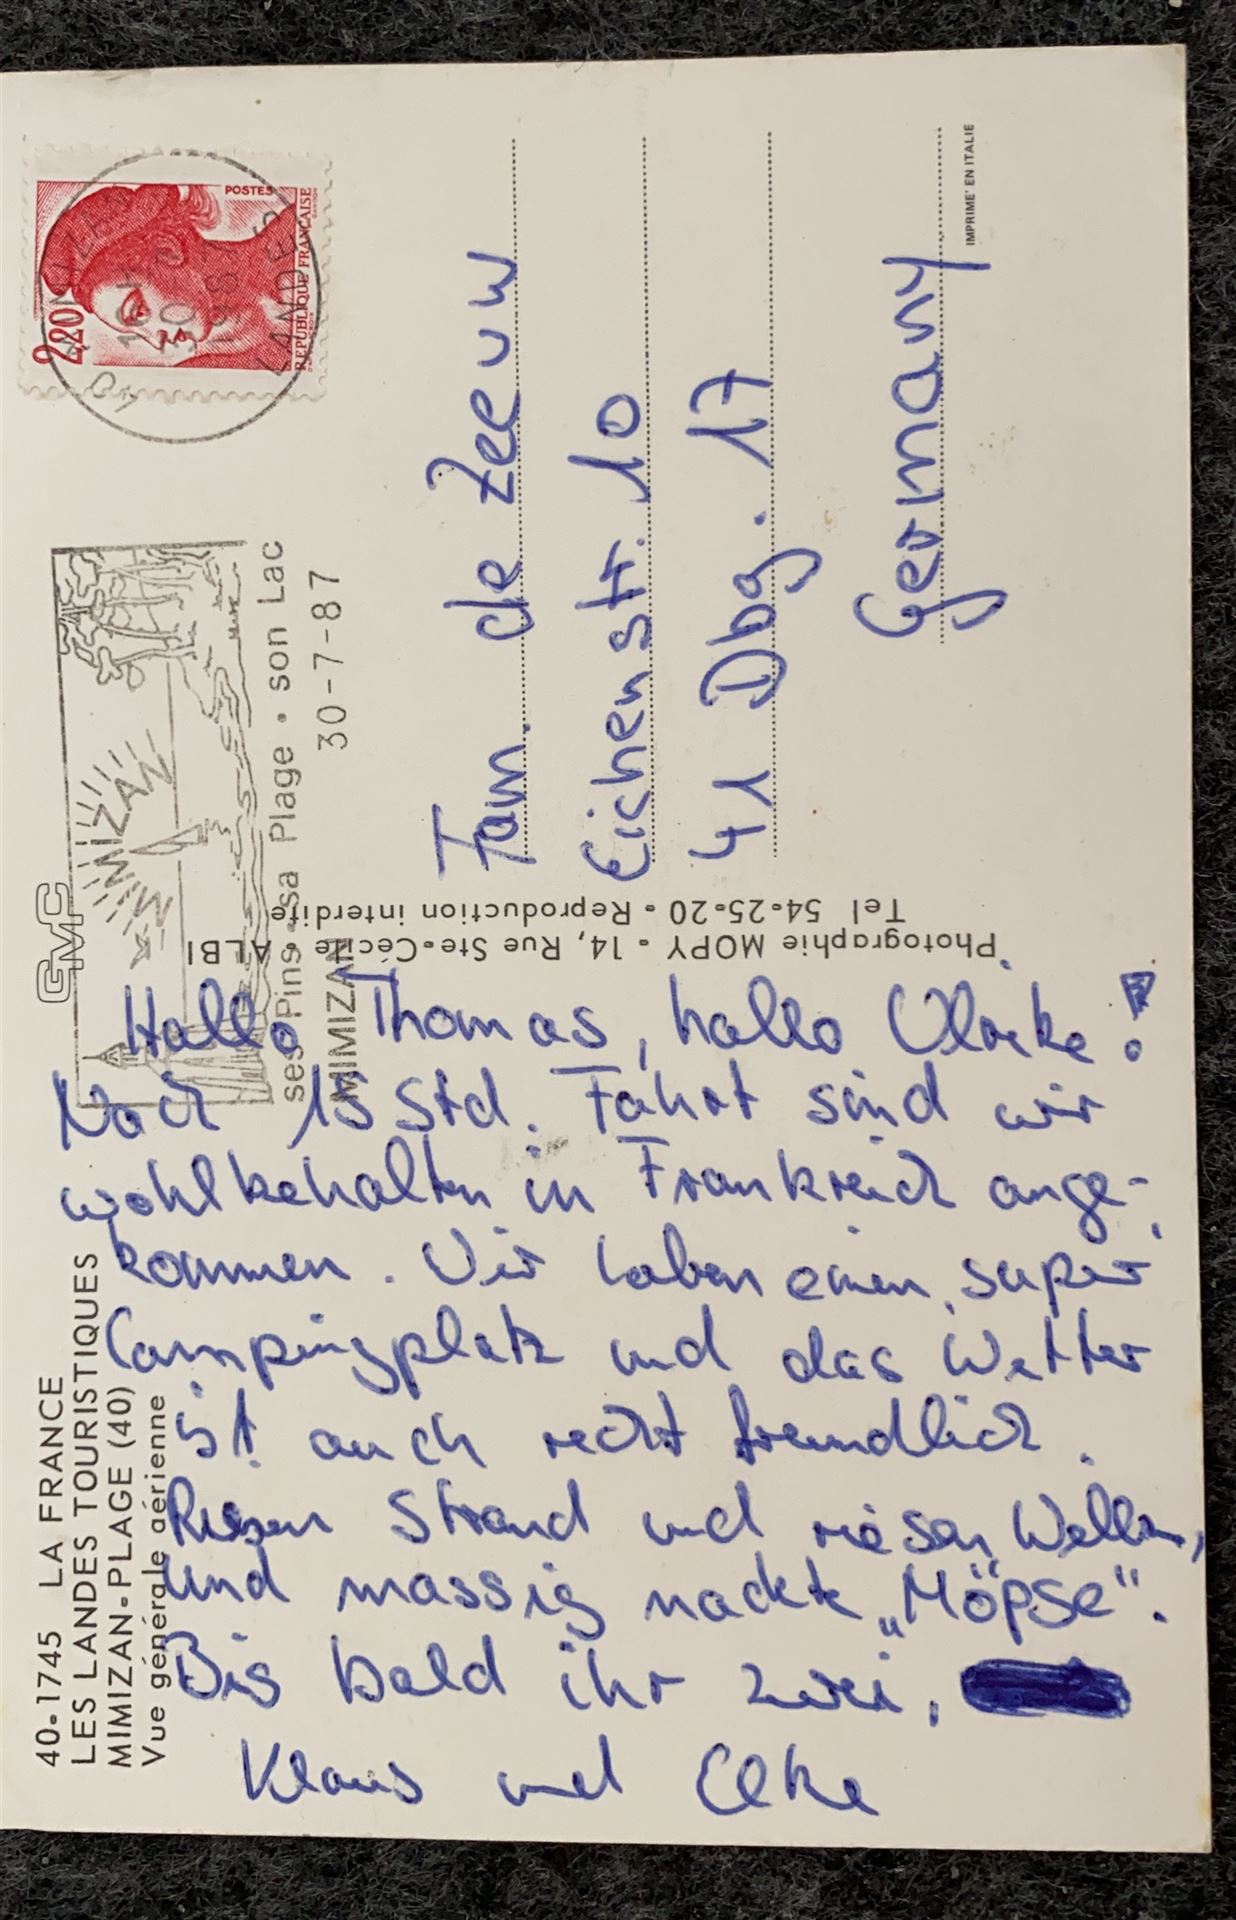 40-1745 LA FRANCE
LES LANDES TOURISTIQUES
MIMIZAN-PLAGE (40)
Vue générale aérienne
GMC
Hallo Thomas, hallo Ulrike!
Nach 15 Std. Fahrt sind wir
wohlbehalten in Frankreich ange-
kommen. Wir haben einen super
Campingplatz und das Wetter
ist auch recht freundlich.
Riesen Strand und riesen Wellen,
und massig nackte „Möpse“.
Bis bald ihr zwei,
Klaus und Elke
Photographie MOPY - 14, Rue Ste-Cécile - ALBI
Tel 54-25-20 - Reproduction interdite
MIMIZAN
ses Pins • sa Plage • son Lac
MIMIZAN 30-7-87
2,20
POSTES
REPUBLIQUE FRANÇAISE
40 MIMIZAN
16H
30-7
1987
LANDES
Fam. de Zeeuw
Eichenstr. 10
41 Dbg. 17
Germany
IMPRIME' EN ITALIE